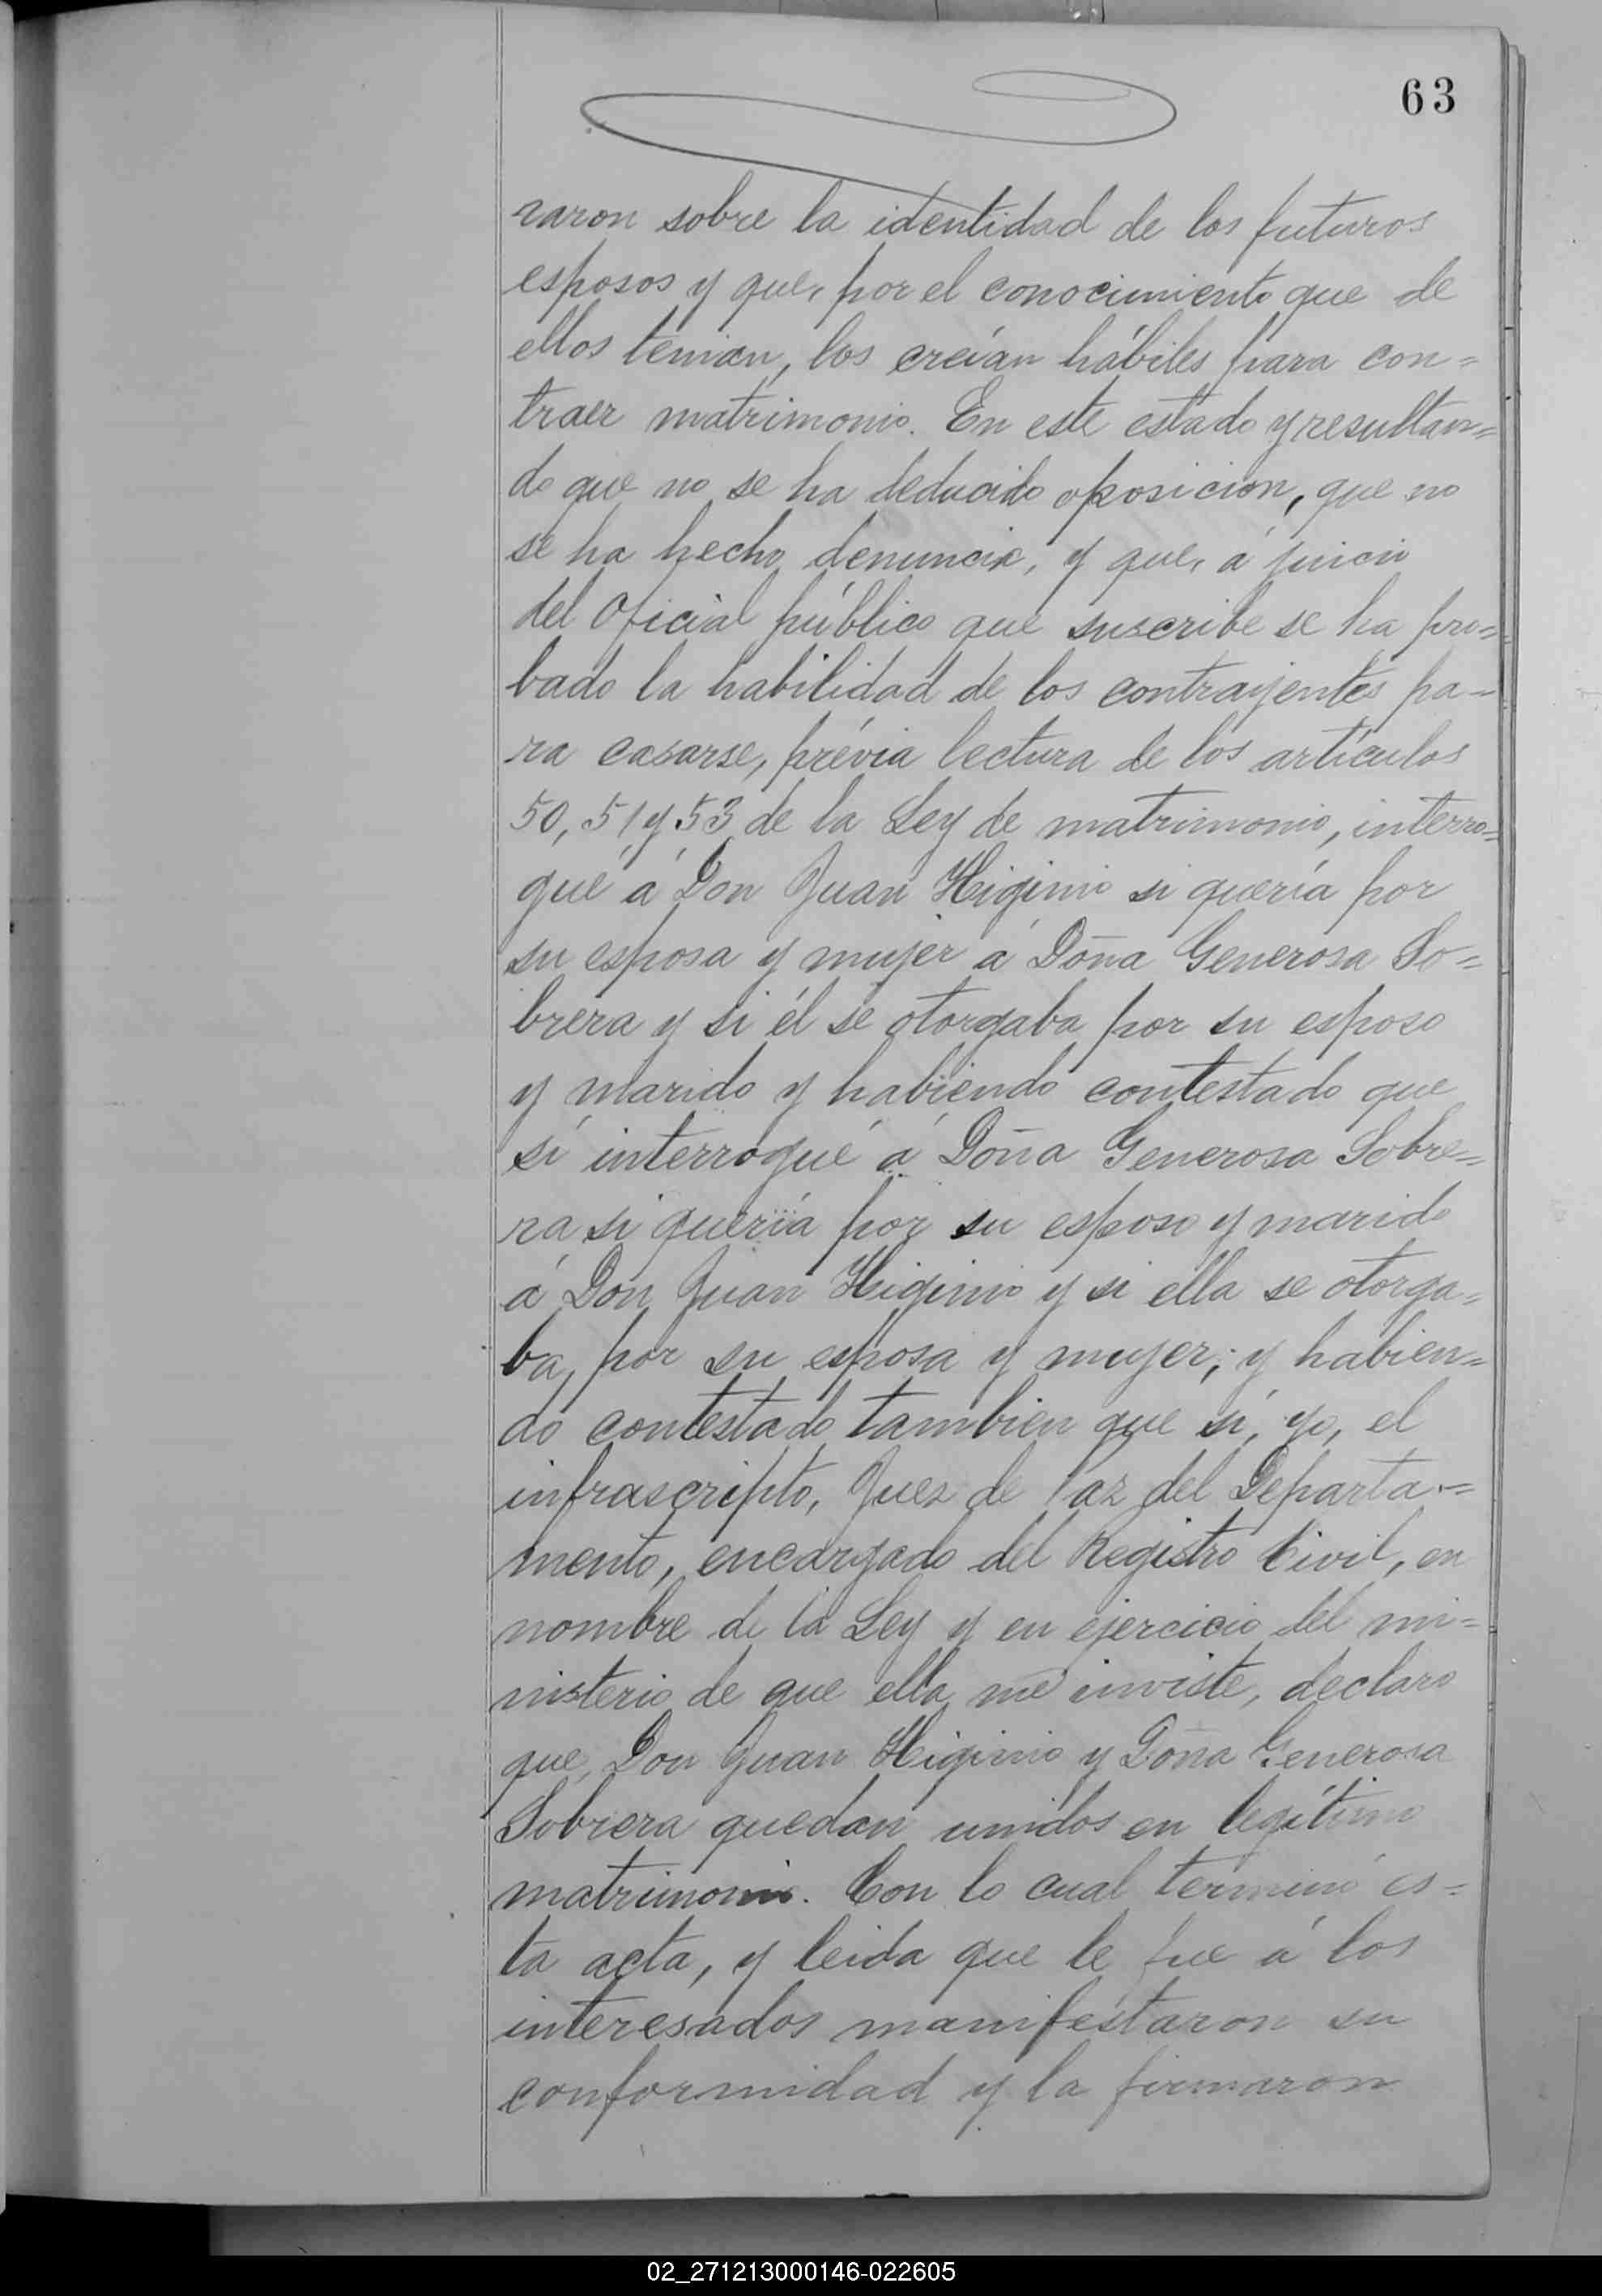 63
raron sobre la identidad de los futuros
esposos y que, por el conocimiento que de
ellos tenian, los creían hábiles para con=
traer matrimonio. En este estado y resultan=
do que no se ha deducido oposicion, que no
se ha hecho denuncia, y que, á juicio
del Oficial público que suscribe se ha pro=
bado la habilidad de los contrayentes pa=
ra casarse, prévia lectura de los artículos
50, 51 y 53 de la Ley de matrimonio, interro=
gué á Don Juan Higinio si quería por
su esposa y mujer á Doña Generosa So=
brera y si él se otorgaba por su esposo
y marido y habiendo contestado que
sí interrogué á Doña Generosa Sobre=
ra si quería por su esposo y marido
á Don Juan Higinio y si ella se otorga=
ba, por su esposa y mujer; y habien=
do contestado tambien que sí, yo, el
infrascripto, Juez de Paz del Departa=
mento, encargado del Registro Civil, en
nombre de la Ley y en ejercicio del mi=
nisterio de que ella me inviste, declaro
que, Don Juan Higinio y Doña Generosa
Sobrera quedan unidos en legítimo
matrimonio. Con lo cual terminó es=
ta acta, y leida que le fue á los
interesados manifestaron su
conformidad y la firmaron
02_271213000146-022605